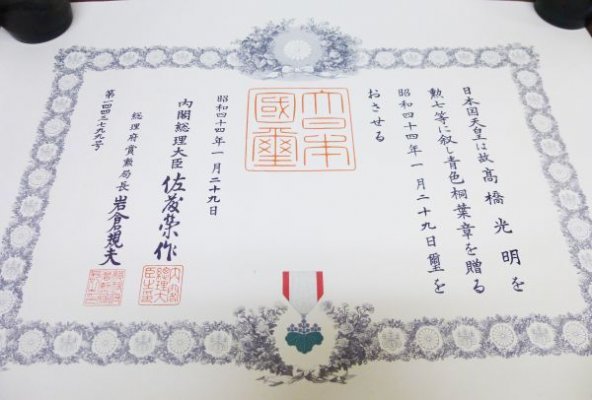 日本国天皇は故高橋光明を
勲七等に叙し青色桐葉章を贈る
昭和四十四年一月二十九日璽を
おさせる
大日本
國璽
昭和四十四年一月二十九日
内閣総理大臣 佐藤榮作
内閣
總理大
臣之印
総理府賞勲局長 岩倉規夫
第一四四三七九九号